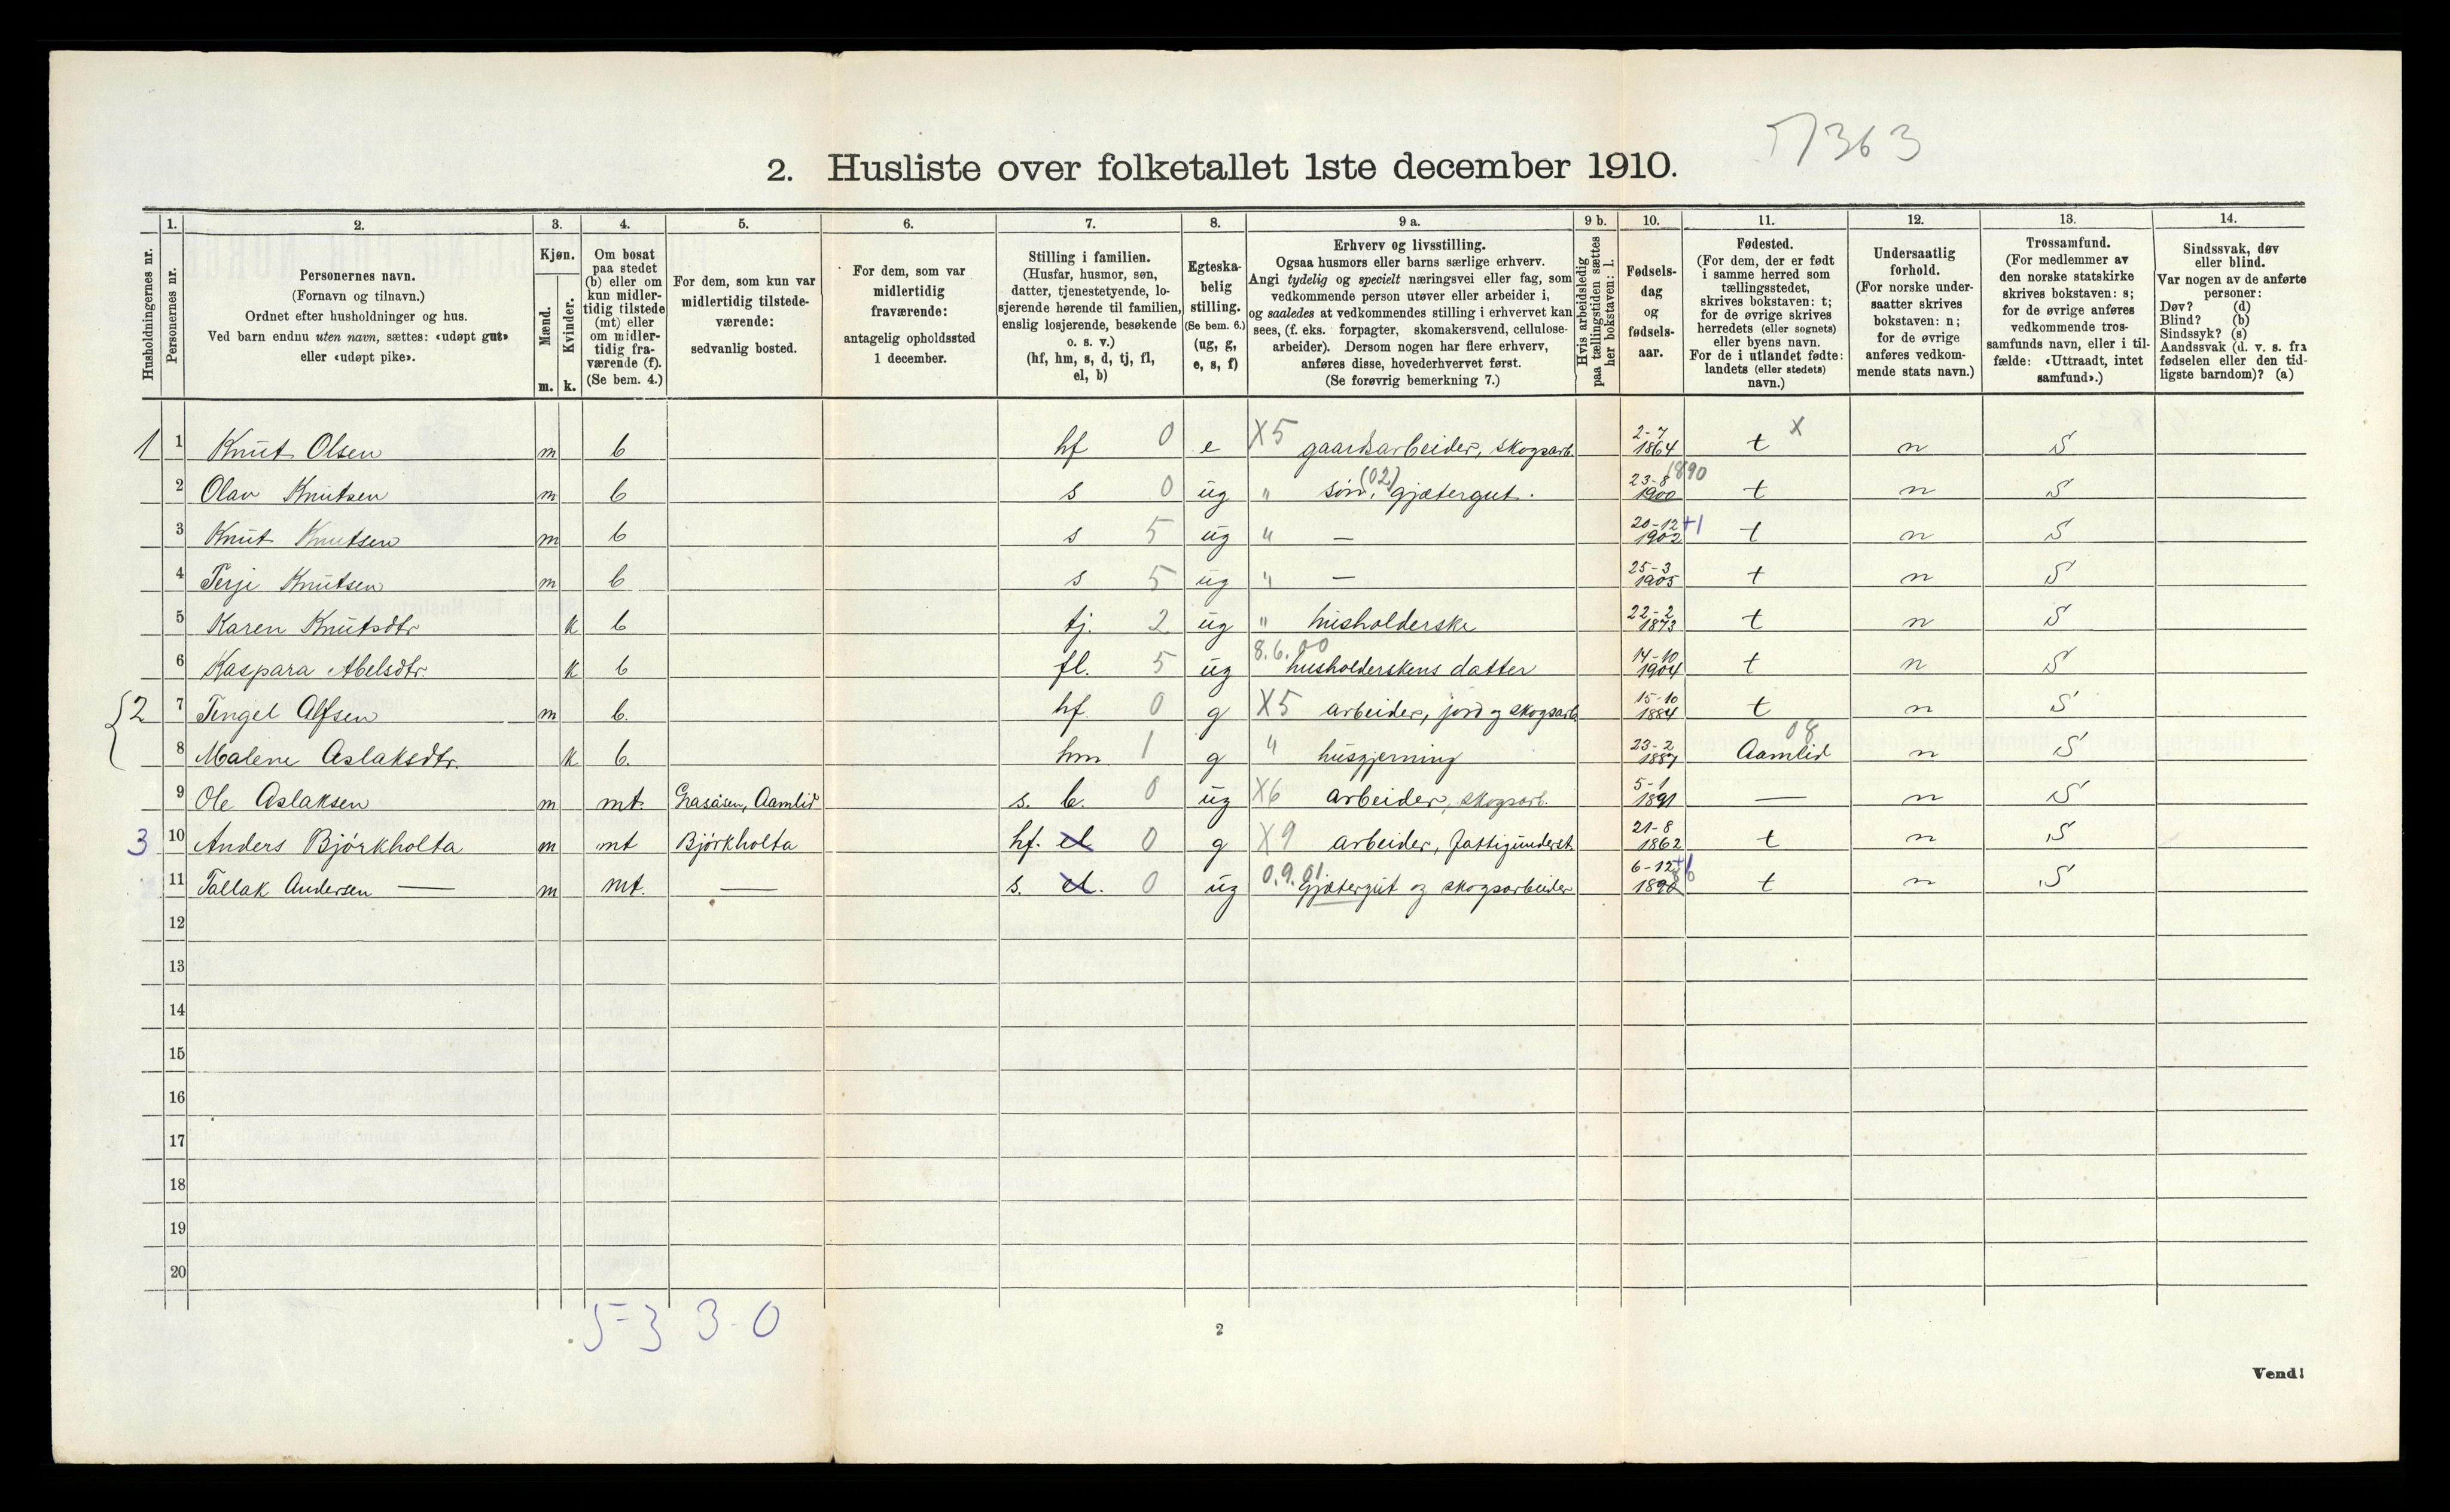 57363
2. Husliste over folketallet 1ste december 1910.
Husholdningernes nr.
1.
Personernes nr.
2.
Personernes navn.
(Fornavn og tilnavn.)
Ordnet efter husholdninger og hus.
Ved barn endnu uten navn, sættes: «udøpt gut»
eller «udøpt pike».
3.
Kjøn.
Mænd.
Kvinder.
m. k.
4.
Om bosat
paa stedet
(b) eller om
kun midler-
tidig tilstede
(mt) eller
om midler-
tidig fra-
værende (f).
(Se bem. 4.)
5.
For dem, som kun var
midlertidig tilstede-
værende:
sedvanlig bosted.
6.
For dem, som var
midlertidig
fraværende:
antagelig opholdssted
1 december.
7.
Stilling i familien.
(Husfar, husmor, søn,
datter, tjenestetyende, lo-
sjerende hørende til familien,
enslig losjerende, besøkende
o. s. v.)
(hf, hm, s, d, tj, fl,
el, b)
8.
Egteska-
belig
stilling.
(Se bem. 6.)
(ug, g,
e, s, f)
9 a.
Erhverv og livsstilling.
Ogsaa husmors eller barns særlige erhverv.
Angi tydelig og specielt næringsvei eller fag, som
vedkommende person utøver eller arbeider i,
og saaledes at vedkommendes stilling i erhvervet kan
sees, (f. eks. forpagter, skomakersvend, cellulose-
arbeider). Dersom nogen har flere erhverv,
anføres disse, hovederhvervet først.
(Se forøvrig bemerkning 7.)
9 b.
Hvis arbeidsledig
paa tællingstiden sættes
her bokstaven: l.
10.
Fødsels-
dag
og
fødsels-
aar.
11.
Fødested.
(For dem, der er født
i samme herred som
tællingsstedet,
skrives bokstaven: t;
for de øvrige skrives
herredets (eller sognets)
eller byens navn.
For de i utlandet fødte:
landets (eller stedets)
navn.)
12.
Undersaatlig
forhold.
(For norske under-
saatter skrives
bokstaven: n;
for de øvrige
anføres vedkom-
mende stats navn.)
13.
Trossamfund.
(For medlemmer av
den norske statskirke
skrives bokstaven: s;
for de øvrige anføres
vedkommende tros-
samfunds navn, eller i til-
fælde: «Uttraadt, intet
samfund».)
14.
Sindssvak, døv
eller blind.
Var nogen av de anførte
personer:
Døv? (d)
Blind? (b)
Sindssyk? (s)
Aandssvak (d. v. s. fra
fødselen eller den tid-
ligste barndom)? (a)
1 1 Knut Olsen m b hf 0 e X5 gaardsarbeider, skogsarb. 2-7 1864 t X n S
2 Olav Knutsen m b s 0 ug " søn, (02) gjætergut. 23-8 1900 1890 t n S
3 Knut Knutsen m b s 5 ug " — 20-12 1902 +1 t n S
4 Terje Knutsen m b s 5 ug " — 25-3 1905 t n S
5 Karen Knutsdtr k b tj. 2 ug " husholderske 22-2 1873 t n S
6 Kaspara Abelsdtr. k b fl. 5 ug 8.6.00 husholderskens datter 14-10 1904 t n S
2 7 Tengel Alfsen m b. hf 0 g X5 arbeider, jord og skogsarb. 15-10 1884 t n S
8 Malene Aslaksdtr. k b. hm 1 g " husgjerning 23-2 1887 Aamlid 08 n S
9 Ole Aslaksen m mt. Grasåsen, Aamlid s. b. 0 ug X6 arbeider, skogsarb. 5-1 1891 — n S
3 10 Anders Bjórkholta m mt Bjórkholta hf. el 0 g X9 arbeider, fattigunderst. 21-8 1862 t n S
11 Tallak Andersen — m mt. — s. el. 0 ug 0.9.01 Gjætergut og skogsarbeider 6-12 +1 1890 t n S
12
13
14
15
16
17
18
19
20
5-3 3-0
2
Vend!